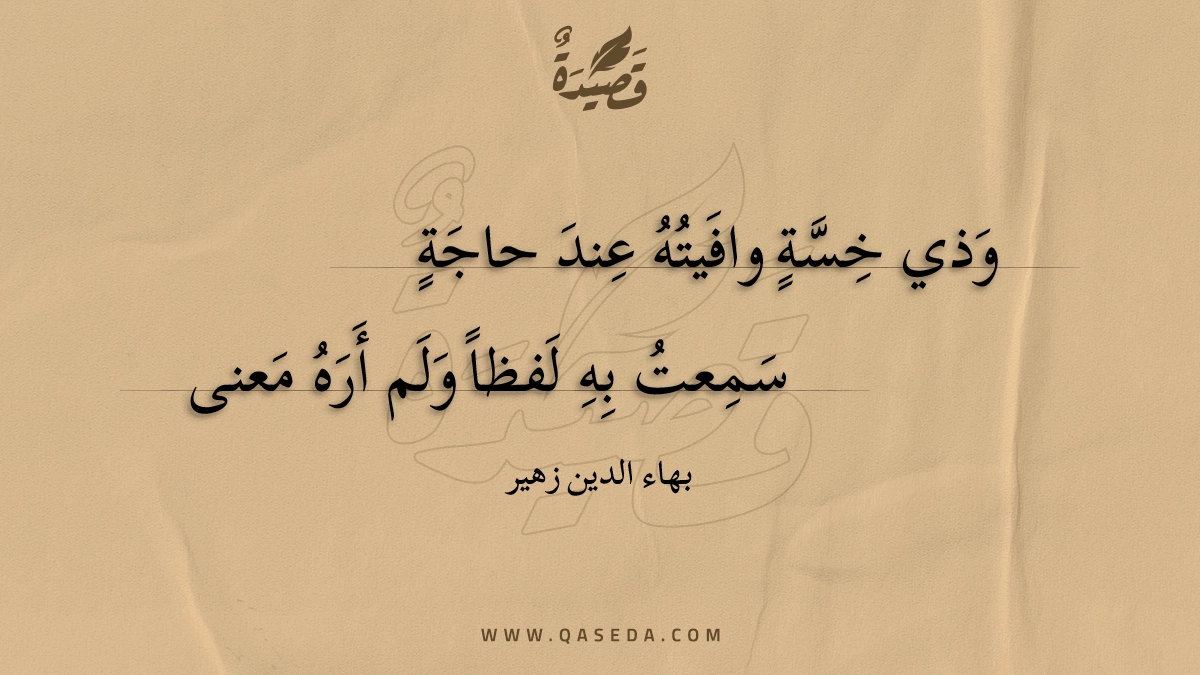 قَصِيدَةٌ
وَذي خِسَّةٍ وافَيتُهُ عِندَ حاجَةٍ
سَمِعتُ بِهِ لَفظاً وَلَم أَرَهُ مَعنى
بهاء الدين زهير
WWW.QASEDA.COM